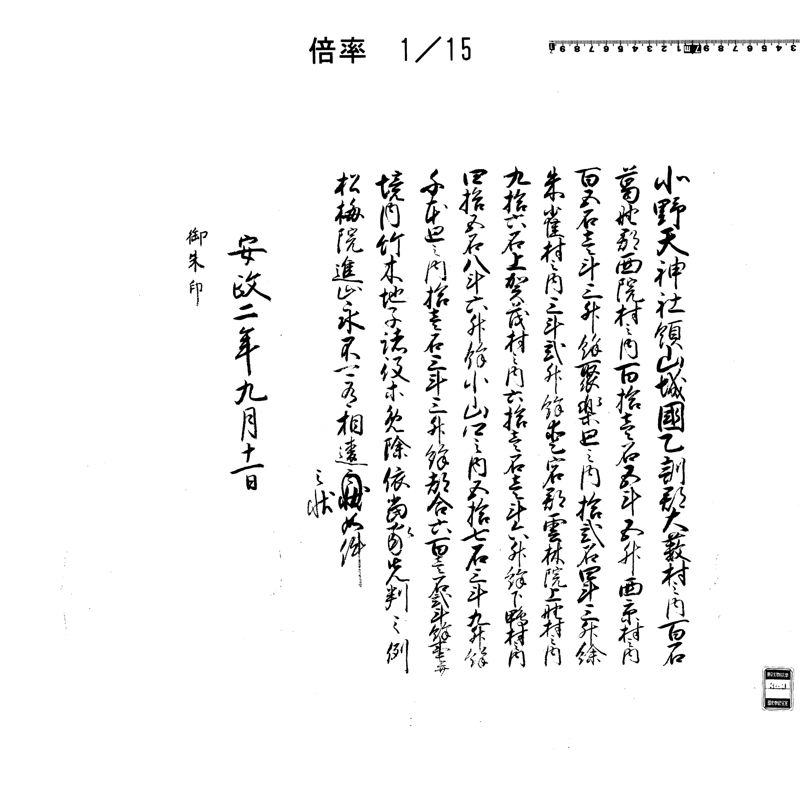 倍率 1/15
北野天神社領山城國乙訓郡大薮村之内百石
葛野郡西院村之内百拾壱石五斗五升西京村之内
百五石壱斗三升餘聚楽廻之内拾弐石四斗三升餘
朱雀村之内三斗弐升餘愛宕郡雲林院上野村之内
九拾六石上賀茂村之内六拾壱石壱斗六升餘下鴨村之内
四拾五石八斗六升餘小山口之内五拾七石三斗九升餘
千本廻之内拾壱石三斗三升餘都合六百壱石弐斗餘事并
境内竹木地子諸役木免除依当家先判之例
松梅院進止永不可有相違如件
之状
安政二年九月十一日
御朱印